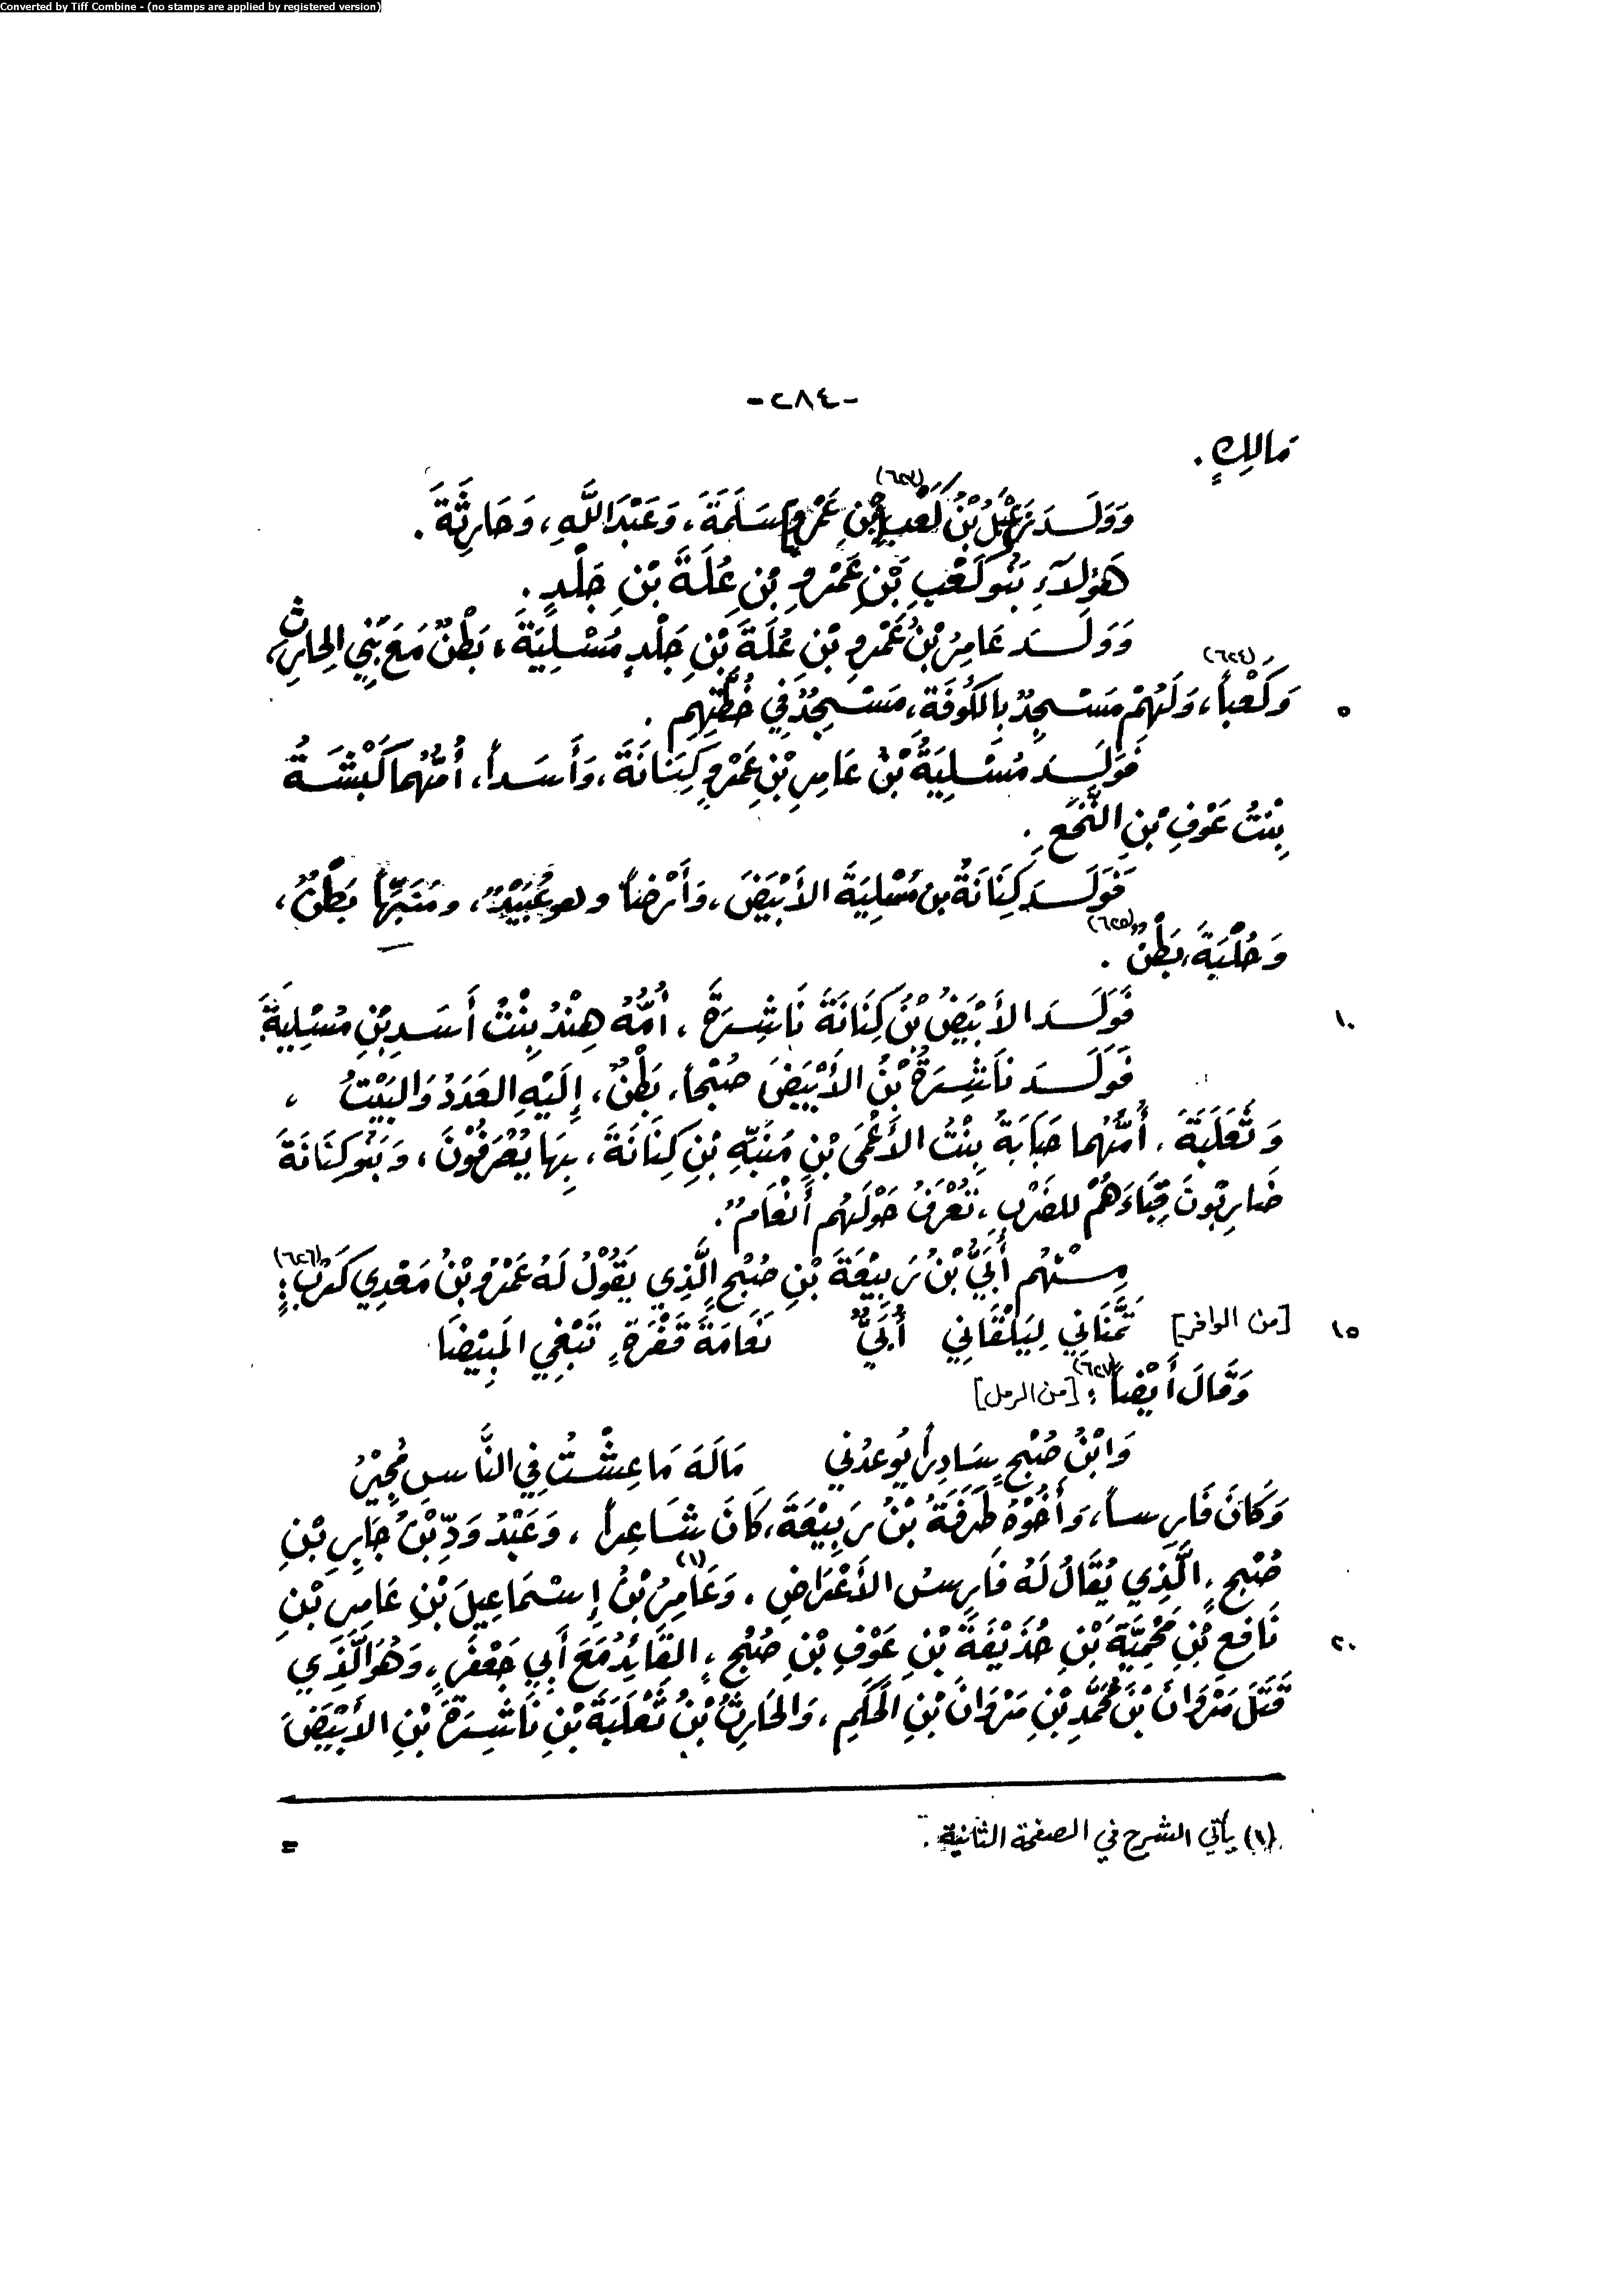 Converted by Tiff Combine - (no stamps are applied by registered version)
-٢٨٤-
مَالِكٍ.
وَوَلَـدَ زَعْبَلُ بْنُ كَعْبِ [بْنِ عَمْرٍو] (٦٢٣) سَلَمَةَ، وَعَبْدَ اللَّهِ، وَحَارِثَةَ.
هَؤلاَءِ بَنُو كَعْبِ بْنِ عَمْرِو بْنِ عُلَةَ بْنِ جَلْدٍ.
وَوَلَـدَ عَامِرُ بْنُ عَمْرِو بْنِ عُلَةَ بْنِ جَلْدٍ مُسْلِيَةَ، بَطْنٌ مَعَ بَنِي الحَارِثِ،
٥ وَكَعْباً (٦٢٤)، وَلَهُمْ مَسْـجِدٌ بِالكُوفَةِ، مَسْـجِدٌ فِي خُطَّتِهِم.
فَوَلَـدَ مُسْلِيَةُ بْنُ عَامِرِ بْنِ عَمْرٍو كِنَانَةَ، وَأَسَداً، أُمُّهُمَا كَبْشَـةُ
بِنْتُ عَوْفِ بْنِ النَّخَعِ.
فَوَلَـدَ كِنَانَةُ بن مُسْلِيَةَ الأَبْيَضَ، وَأَرْضاً وهو عُبَيْدٌ، ومُنَبِّهاً بَطْنٌ،
وَحُلْبَةَ، بَطْنٌ (٦٢٥).
١٠ فَوَلَـدَ الأَبْيَضُ بْنُ كِنَانَةَ نَاشِـرَةَ، أُمُّهُ هِنْدُ بِنْتُ أَسَـدِ بْنِ مُسْلِيَةَ.
فَوَلَـدَ نَاشِـرَةُ بْنُ الأَبْيَضَ صُبْحاً، بَطْنٌ، إِلَيْهِ العَدَدُ وَالبَيْتُ،
وَثَعْلَبَةَ، أُمُّهُمَا حَبَابَةُ بِنْتُ الأَعْمَى بْنِ مُنَبِّهِ بْنِ كِنَانَةَ، بِهَا يُعْرَفُوْنَ، وَبَنُو كِنَانَةَ
ضَارِبُونَ قِبَاءَهُمْ للضَرْبِ، تُعْرَفُ حَوْلَهُم أَنْعَامٌ.
مِـنْهُم أُبَيُّ بْنُ رَبِيْعَةَ بْنِ صُبْحٍ الَّذِي يَقُوْلُ لَهُ عَمْرُو بْنُ مَعْدِي كَرَبٍ (٦٢٦):
١٥ [من الوافر] تَمَنَّانِي لِيَلْقَانِي أُبَيٌّ نَعَامَةَ قَفْرَةٍ تَبْغِي المَبِيْضَا
وَقَالَ أَيْضاً (٦٢٧): [من الرمل]
وَابْنُ صُبْحٍ سَادِراً يُوعِدُنِي مَالَهُ مَا عِشْـتُ فِي النَّاسِ مُجِيْرُ
وَكَانَ فَارِسـاً، وَأَخُوْهُ طَرَفَةُ بْنُ رَبِيْعَةَ، كَانَ شَاعِراً، وَعَبْدُ وَدِّ بْنُ جَابِرِ بْنِ
صُبْحٍ، الَّذِي يُقَالُ لَهُ فَارِسُ الأَعْرَاضِ، وَعَامِرُ (١) بْنُ إِسْـمَاعِيلَ بْنِ عَامِرِ بْنِ
٢٠ نَافِعِ بْنِ مَحْمِيَّةَ بْنِ حُذَيْفَةَ بْنِ عَوْفِ بْنِ صُبْحٍ، القَائِدُ مَعَ أَبِي جَعْفَرٍ، وَهُوَ الَّذِي
قَتَلَ مَرْوَانَ بْنَ مُحَمَّدِ بْنِ مَرْوَانَ بْنِ الحَكَمِ، وَالحَارِثُ بْنُ ثَعْلَبَةَ بْنِ نَاشِـرَةَ بْنِ الأَبْيَضَ
(١) يأتي الشرح في الصفحة الثانية. =